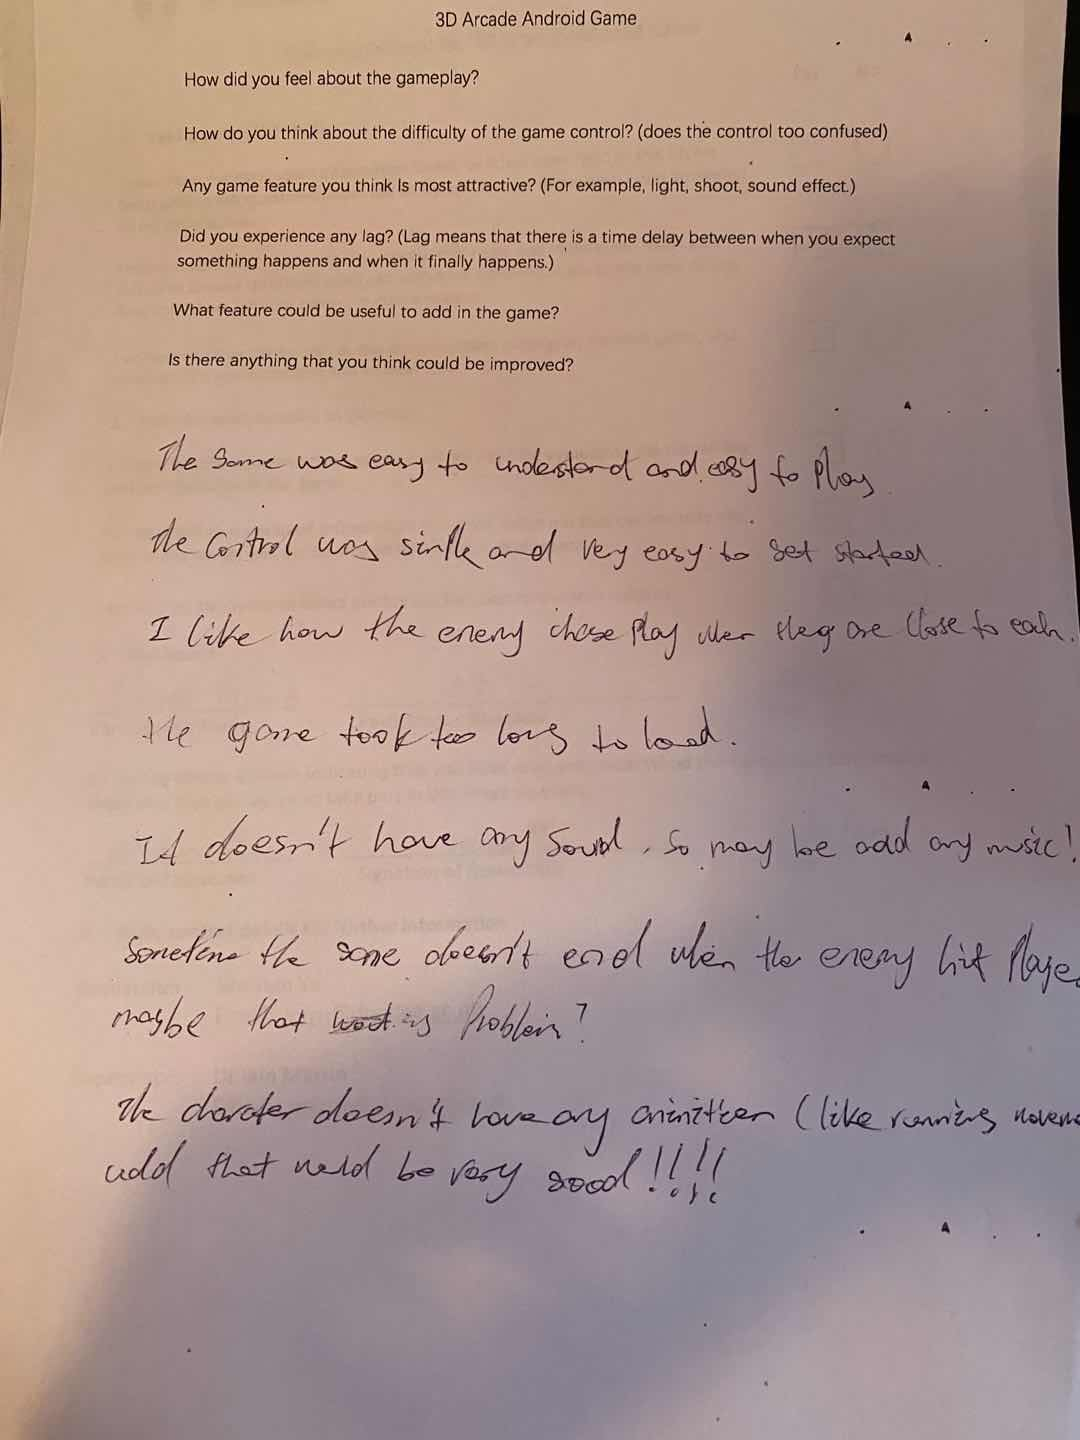 3D Arcade Android Game
How did you feel about the gameplay?
How do you think about the difficulty of the game control? (does the control too confused)
Any game feature you think Is most attractive? (For example, light, shoot, sound effect.)
Did you experience any lag? (Lag means that there is a time delay between when you expect
something happens and when it finally happens.)
What feature could be useful to add in the game?
Is there anything that you think could be improved?
The game was easy to understand and easy to play.
The control was simple and very easy to get started.
I like how the enemy chase play when they are close to each.
The game took too long to load.
It doesn't have any sound, so may be add any music!
Sometime the game doesn't end when the enemy hit player
maybe that is problem?
The character doesn't have any animation (like running
add that would be very good!!!!